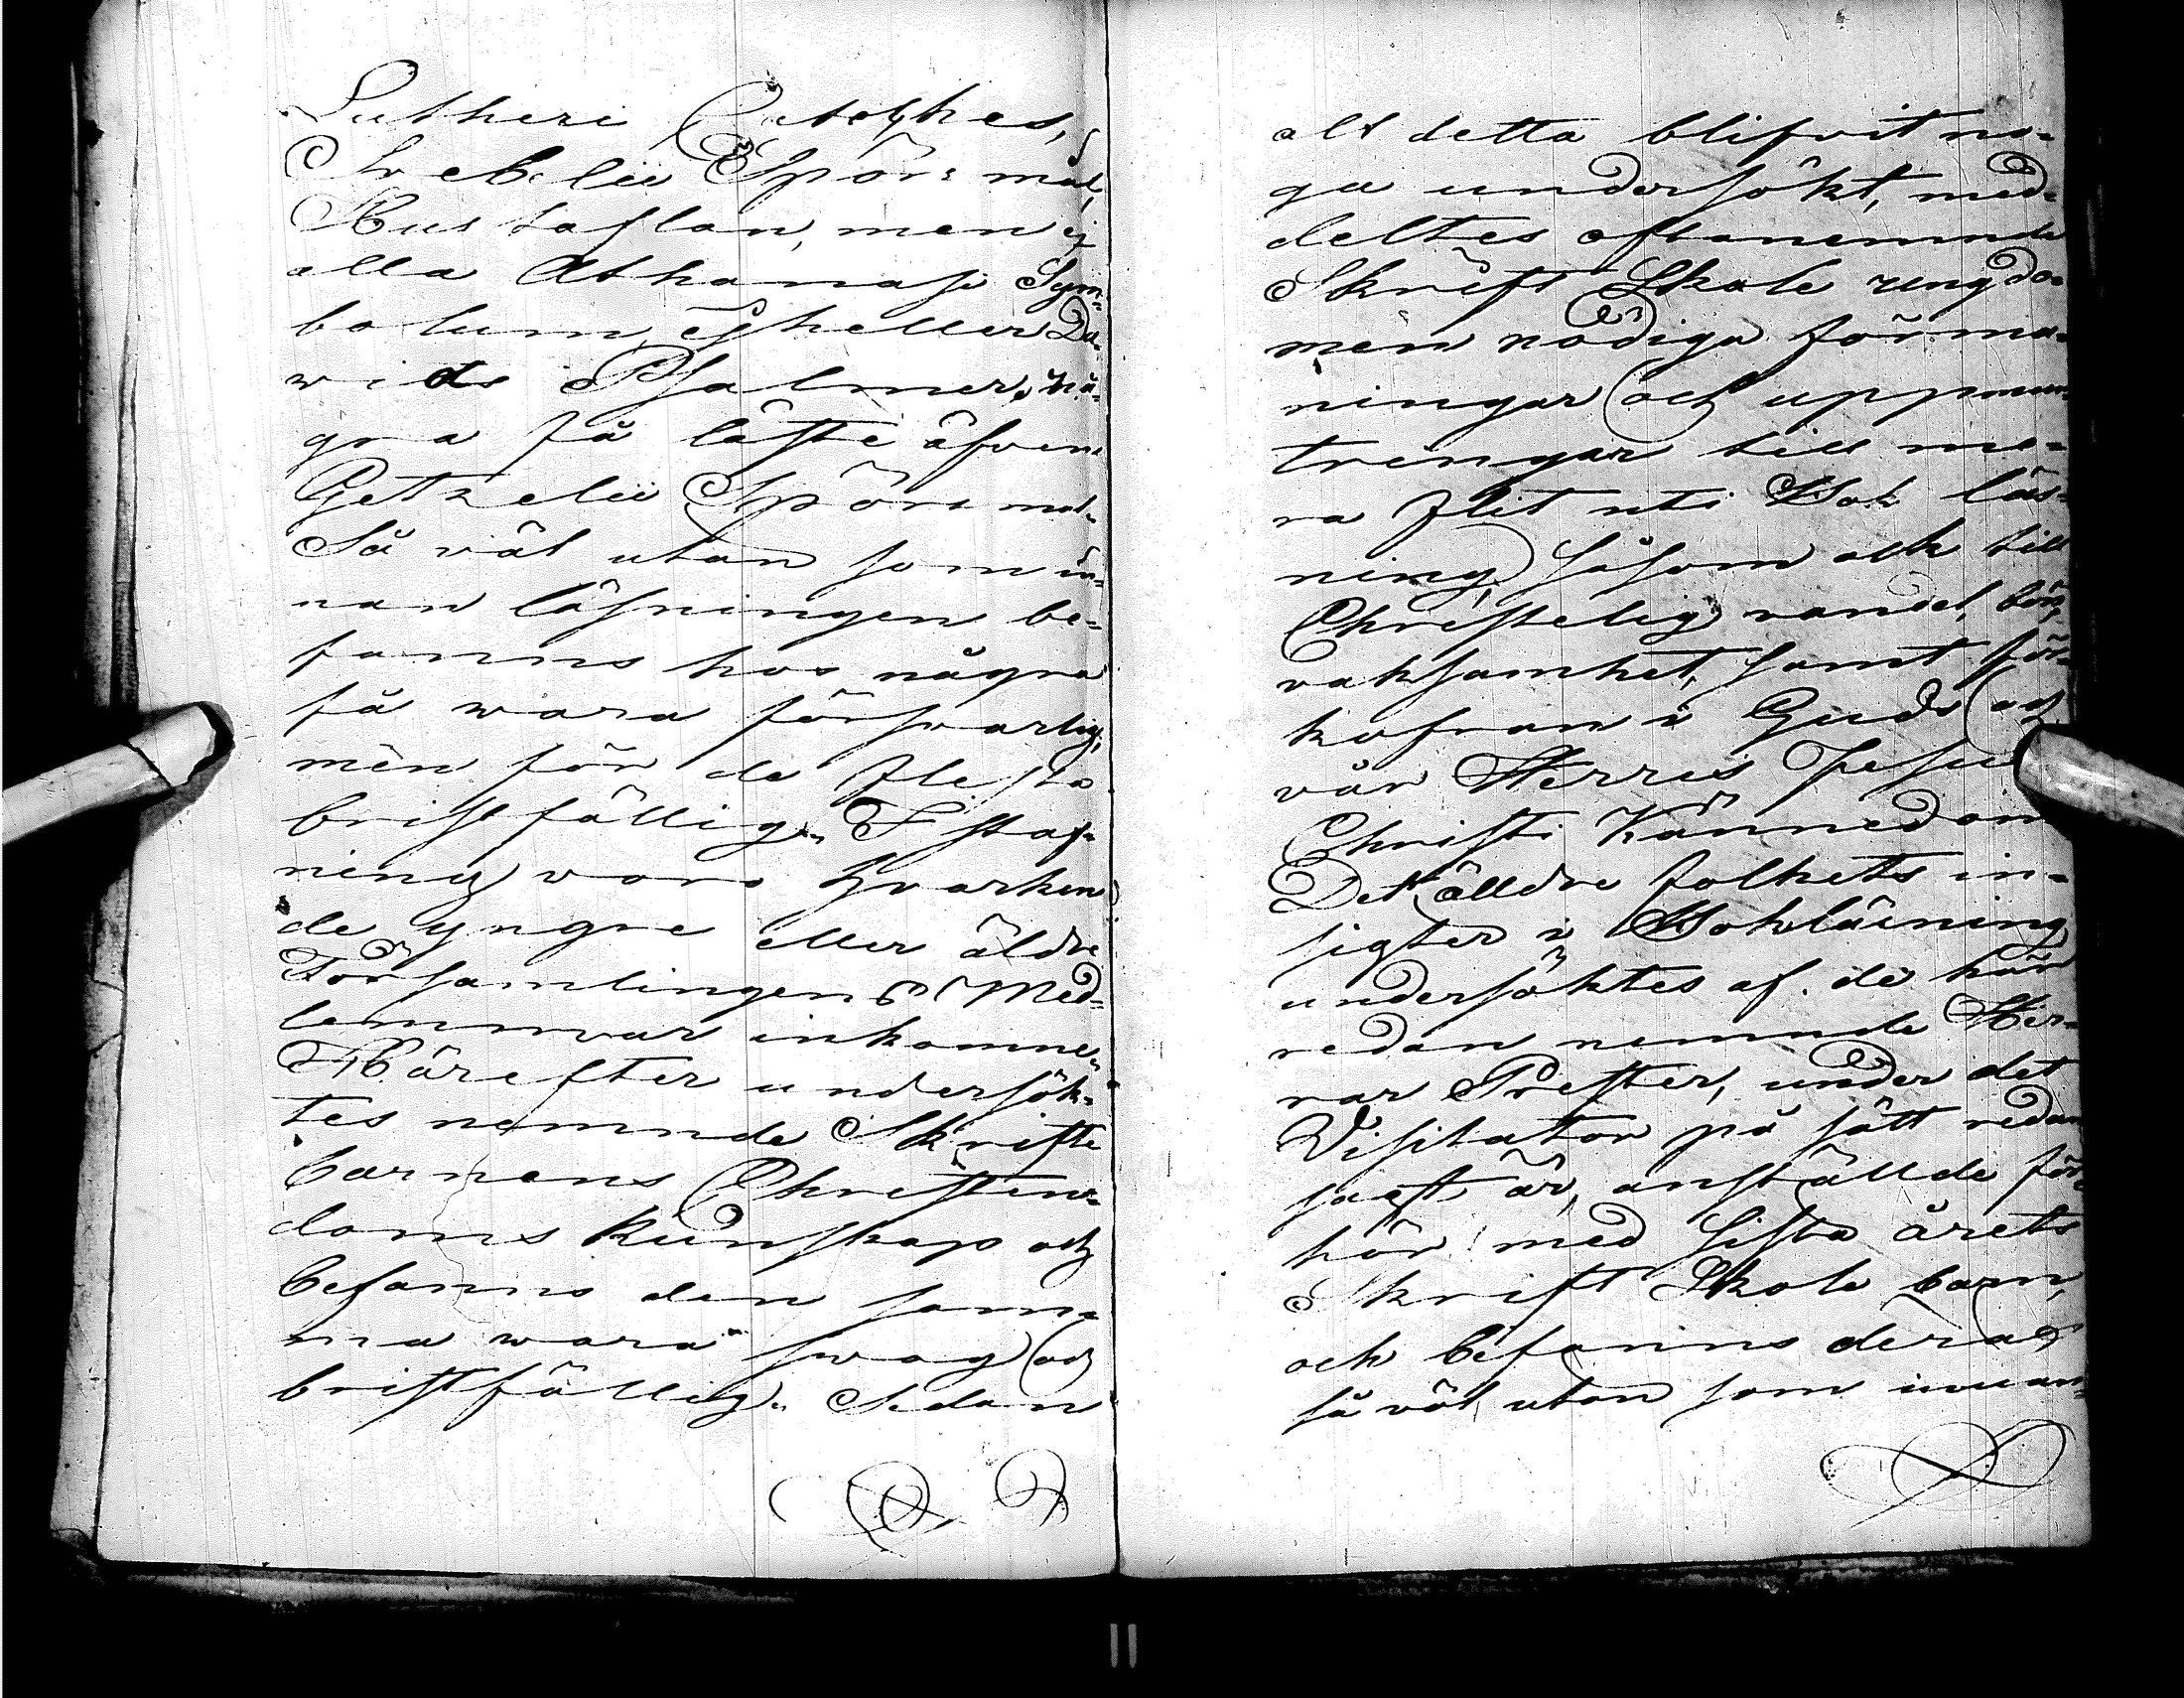 Lutheri Catechés,
Svebelii Spörs mål,
Hustaflan, men ej
alla Athanasi Sym-
bolum, ej heller Da-
wids Psalmer, nå-
gra få läste äfven
Getzelii Spörsmål.
Så väl utan som in-
nan läsningen be-
fanns hos några
få wara försvarlig,
mèn för de fleste
bristfällig. I staf-
ning voro hvarken
de yngre eller äldre
Församlingens Med-
lemmar inkomne.
Härefter undersök-
tes nemnde Skrifte
barnens Christen-
doms kunskap och
befanns den sam-
ma wara swag och
bristfällig. Sedan
alt detta blifvit no-
ga undersökt, med-
deltes oftanemnde
Skrift Skole ungdo-
men nödiga förma-
ningar och uppmun-
tringar till me-
ra flit uti Bok läs-
ning, såsom ock till
Christelig vandel,
vaksamhet, samt för-
kofran i Guds och
vår Herres Jesu
Christi Kännedom
Det älldre folkets in-
sigter i Bokläsning
undersöktes af de här
redan nemnde Her-
rar Prester, under det
Visitator på sätt redan
sagt är, anställde för-
hör med sista årets
Skrift Skole barn,
och befanns deras
så väl utan som innan-